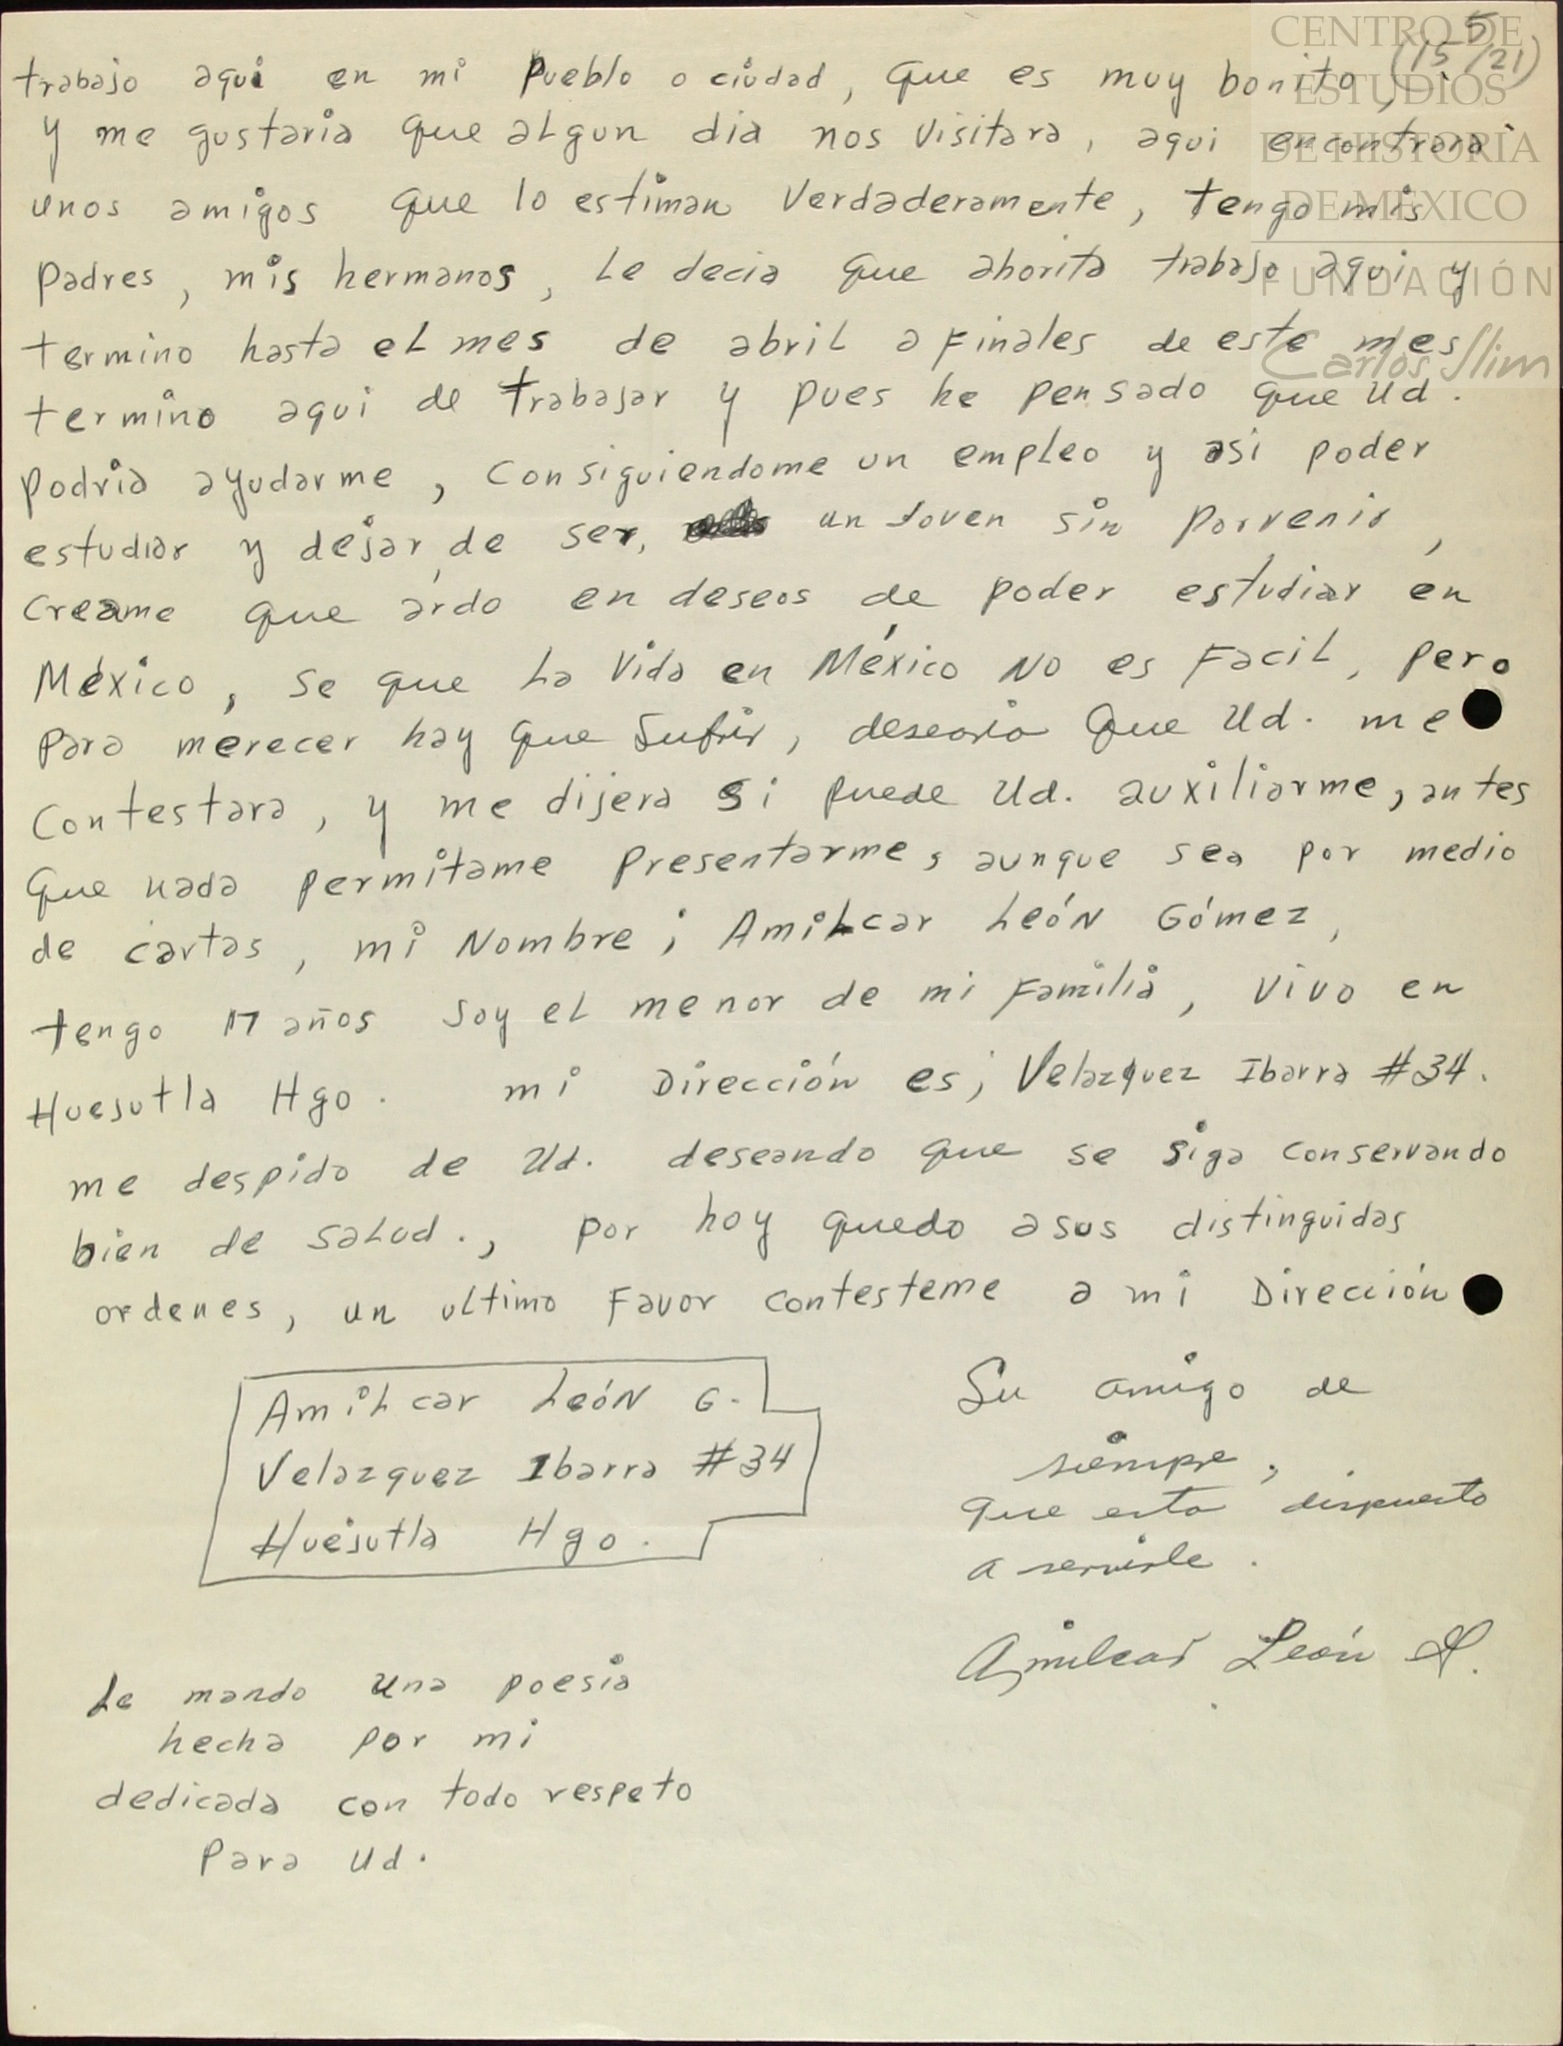 CENTRO DE
ESTUDIOS
DE HISTORIA
DE MÉXICO
FUNDACIÓN
Carlos Slim
5
(15/21)
trabajo aqui en mi pueblo o ciudad, que es muy bonito,
y me gustaria que algun dia nos visitara, aqui encontrara
unos amigos que lo estiman verdaderamente, tengo mis
padres, mis hermanos, Le decia que ahorita trabajo aqui y
termino hasta el mes de abril a finales de este mes
termino aqui de trabajar y pues he pensado que Ud.
podria ayudarme, consiguiendome un empleo y asi poder
estudiar y dejar de ser, un Joven sin porvenir,
creame que ardo en deseos de poder estudiar en
México, se que La Vida en México No es Facil, pero
para merecer hay que sufrir, desearia que Ud. me
contestara, y me dijera si puede Ud. auxiliarme, antes
que nada permitame presentarme, aunque sea por medio
de cartas, mi Nombre; Amilcar León Gómez,
tengo 17 años soy el menor de mi Familia, vivo en
Huejutla Hgo. mi Dirección es; Velazquez Ibarra #34.
me despido de Ud. deseando que se siga conservando
bien de salud., por hoy quedo asus distinguidas
ordenes, un ultimo Favor contesteme a mi Dirección
Amilcar León G.
Velazquez Ibarra #34
Huejutla Hgo.
Su amigo de
siempre,
que esta dispuesto
a servirle.
Amilcar León G.
Le mando una poesia
hecha por mi
dedicada con todo respeto
Para Ud.